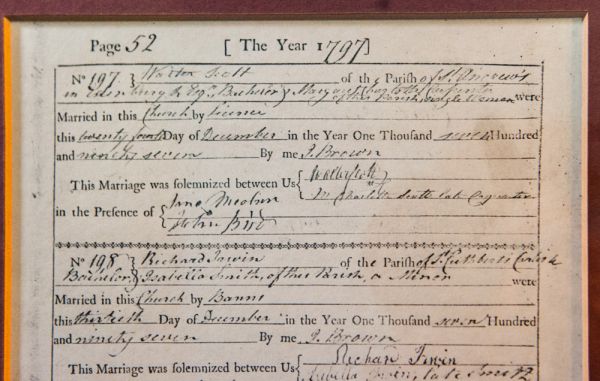 Page 52 [ The Year 1797]
No 197. } Walter Scott of the Parish of St. Andrew's
in Edinburgh Esqr. Bachelor & Margaret Charlotte Carpenter
of this Parish, single Woman were
Married in this Church by Licence
this twenty fourth Day of December in the Year One Thousand seven Hundred
and ninety seven By me J. Brown
This Marriage was solemnized between Us { Walter Scott
M. Charlotte Scott late Carpenter
in the Presence of { Jane Nicolson
John Bird
No 198 } Richard Irwin of the Parish of St. Cuthberts Carlisle
Bachelor & Isabella Smith, of this Parish, a Minor were
Married in this Church by Banns
this thirtieth Day of December in the Year One Thousand seven Hundred
and ninety seven By me J. Brown
This Marriage was solemnized between Us { Richard Irwin
Isabella Irwin, late Smith